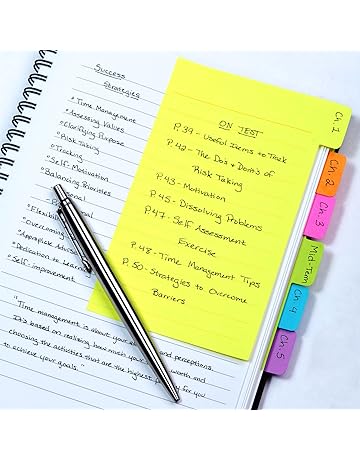 Success
Strategies
"Time Management
"Assessing Values
"Clarifying Purpose
"Risk Taking
"Tracking
"Self-Motivation
"Balancing Priorities
"Overcoming
"Dedication to
"Self improvement
"Time management is about your and perceptions.
It's based on realizing how much you worth and
choosing the activities that are the highest for you
to achieve your goals."
ON TEST
P.39- Useful Items to Track
P.42- The Do's & Dont's of
Risk Taking
P.43- Motivation
P.45- Dissolving Problems
P.47- Self Assessment
Exercise
P.48- Time Management Tips
P.50- Strategies to Overcome
Barriers
Ch. 1
Ch. 2
Ch. 3
Mid-Term
Ch. 4
Ch. 5